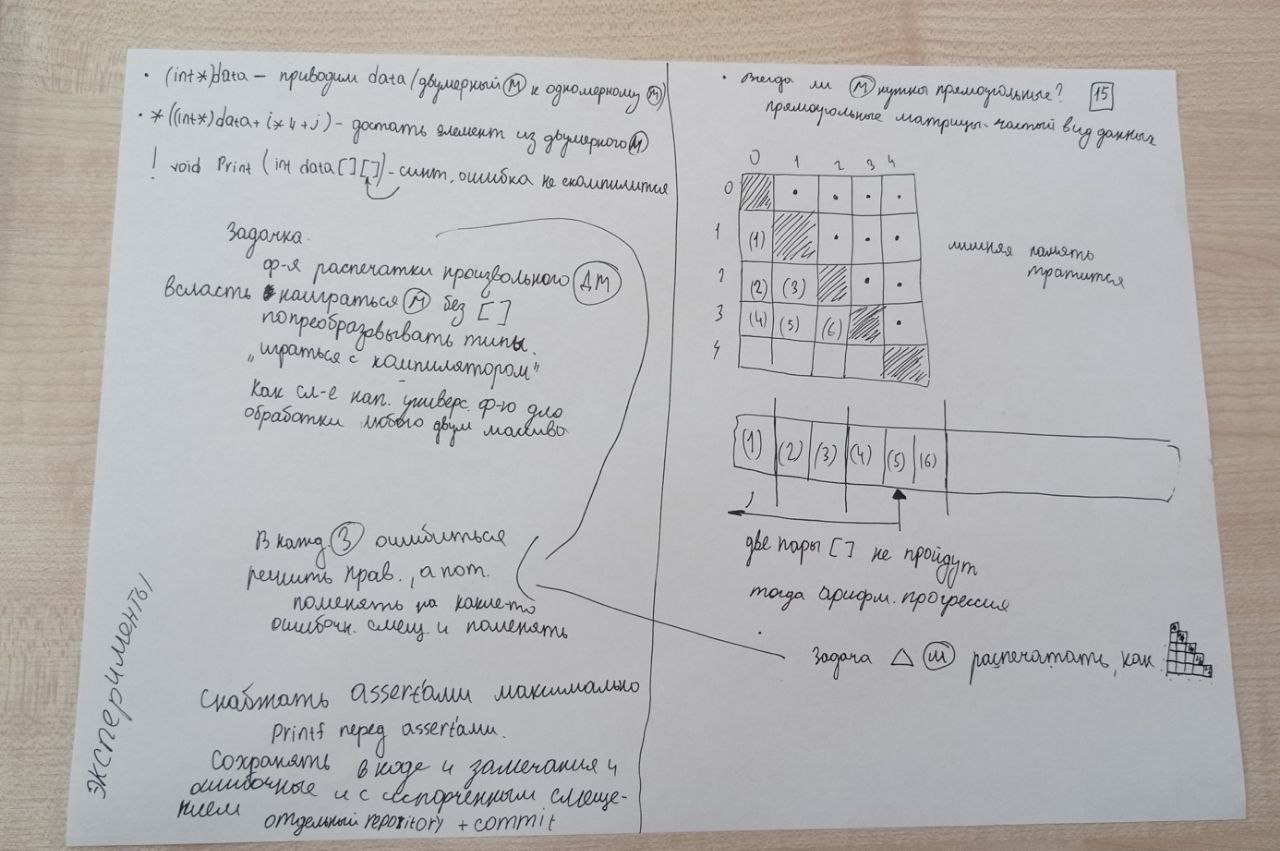 • (int*)data – приводим data/двумерный (М) к одномерному (М))
• *((int*)data + i*4+j) – достать элемент из двумерного (М)
! void Print (int data[][]) – синт. ошибка не скомпилится
Задачка.
ф-я распечатки произвольного (ДМ)
всласть наиграться (М) без [ ]
попреобразовывать типы.
„играться с компилятором"
Как сл-е нап. универс. ф-ю для
обработки любого двум массива
В кажд. (З) ошибиться
решить прав., а пот.
поменять на какие-то
ошибочн. смещ. и поменять
эксперименты
Снабжать assert'ами максимально
Printf перед assert'ами.
Сохранять в коде и замечания и
ошибочные и с испорченным смеще-
нием
отдельный repository + commit
• Всегда ли (М) нужны прямоугольные?
15
прямоугольные матрицы - частый вид данных
0 1 2 3 4
0
1 (1)
2 (2) (3)
3 (4) (5) (6)
4
лишняя память
тратится
(1) (2) (3) (4) (5) (6)
две пары [ ] не пройдут
тогда арифм. прогрессия
Задача △ (М) распечатать, как